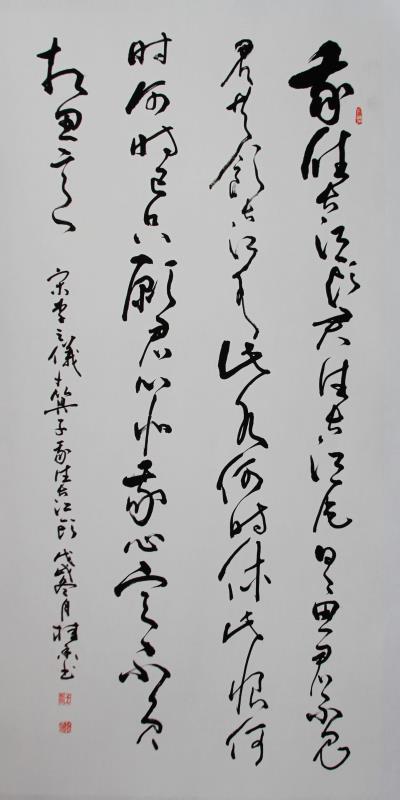 我住长江頭君住长江尾日日思君不見
君共飲长江水此水何時休此恨何
时何時已只願君心似我心定不負
相思意
宋李之儀卜算子我住长江頭 戊戌冬月桂书